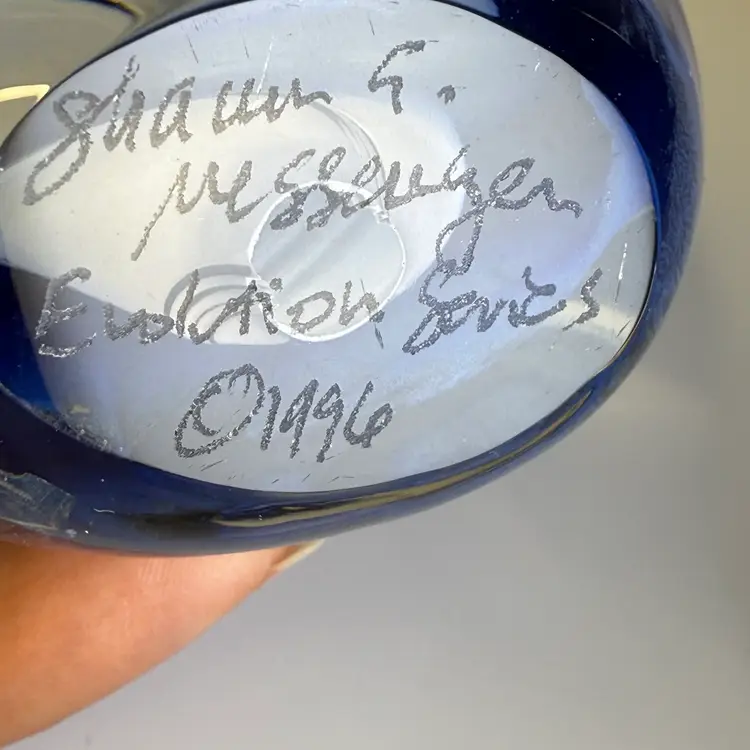 Shawn E.
Messenger
Evolution Series
©1996